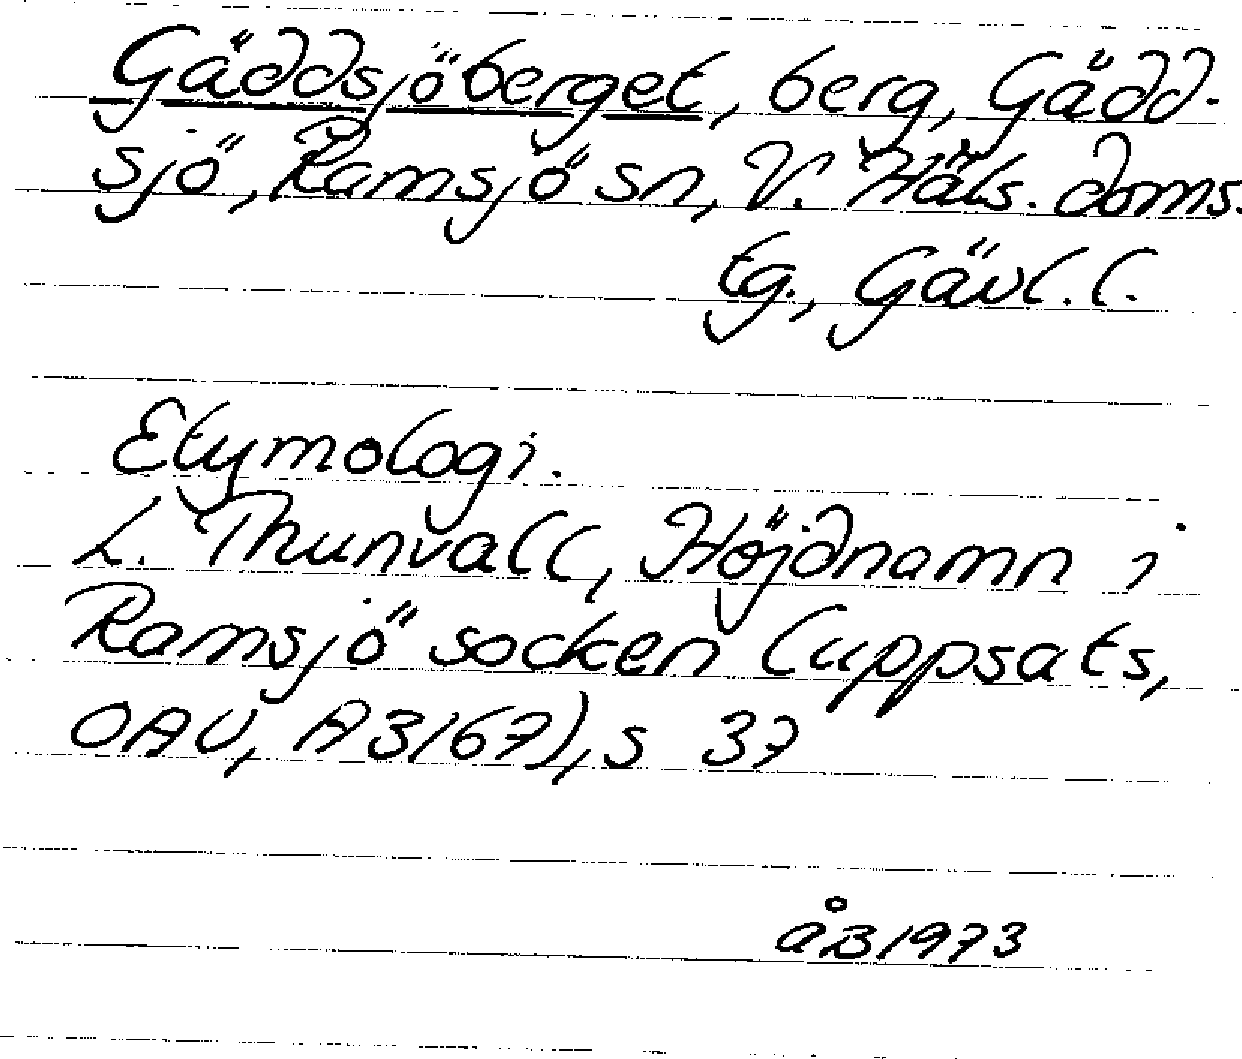 Gäddsjöberget, berg, Gädd-
sjö, Ramsjö sn, V. Häls. doms.
tg., Gävl. l.
Etymologi.
L. Thunvall, Höjdnamn i
Ramsjö socken (uppsats,
OAU, A3167), s 37
åB1973